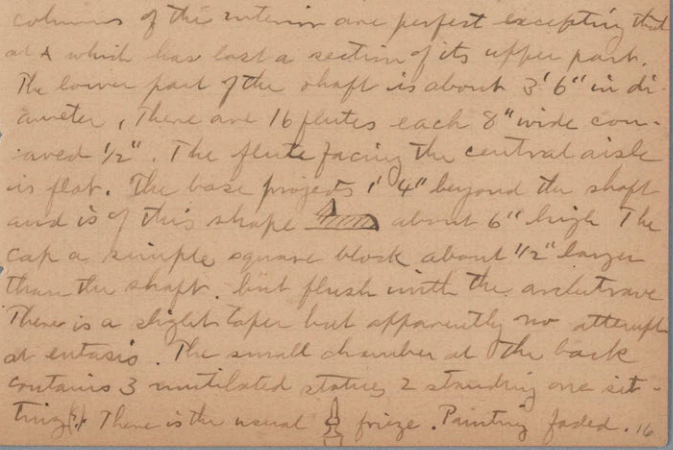 columns of this interior are perfect excepting that
at A which has lost a section of its upper part.
The lower part of the shaft is about 3' 6" in di-
ameter, There are 16 flutes each 8" wide con-
caved ½". The flute facing the central aisle
is flat. The base projects 1' 4" beyond the shaft
and is of this shape about 6" high The
cap a simple square block about ½" larger
than the shaft. but flush with the architrave
There is a slight taper but apparently no attempt
at entasis. The small chamber at the back
contains 3 mutilated statues 2 standing one sit-
ting(?) There is the usual frieze. Painting faded. 16